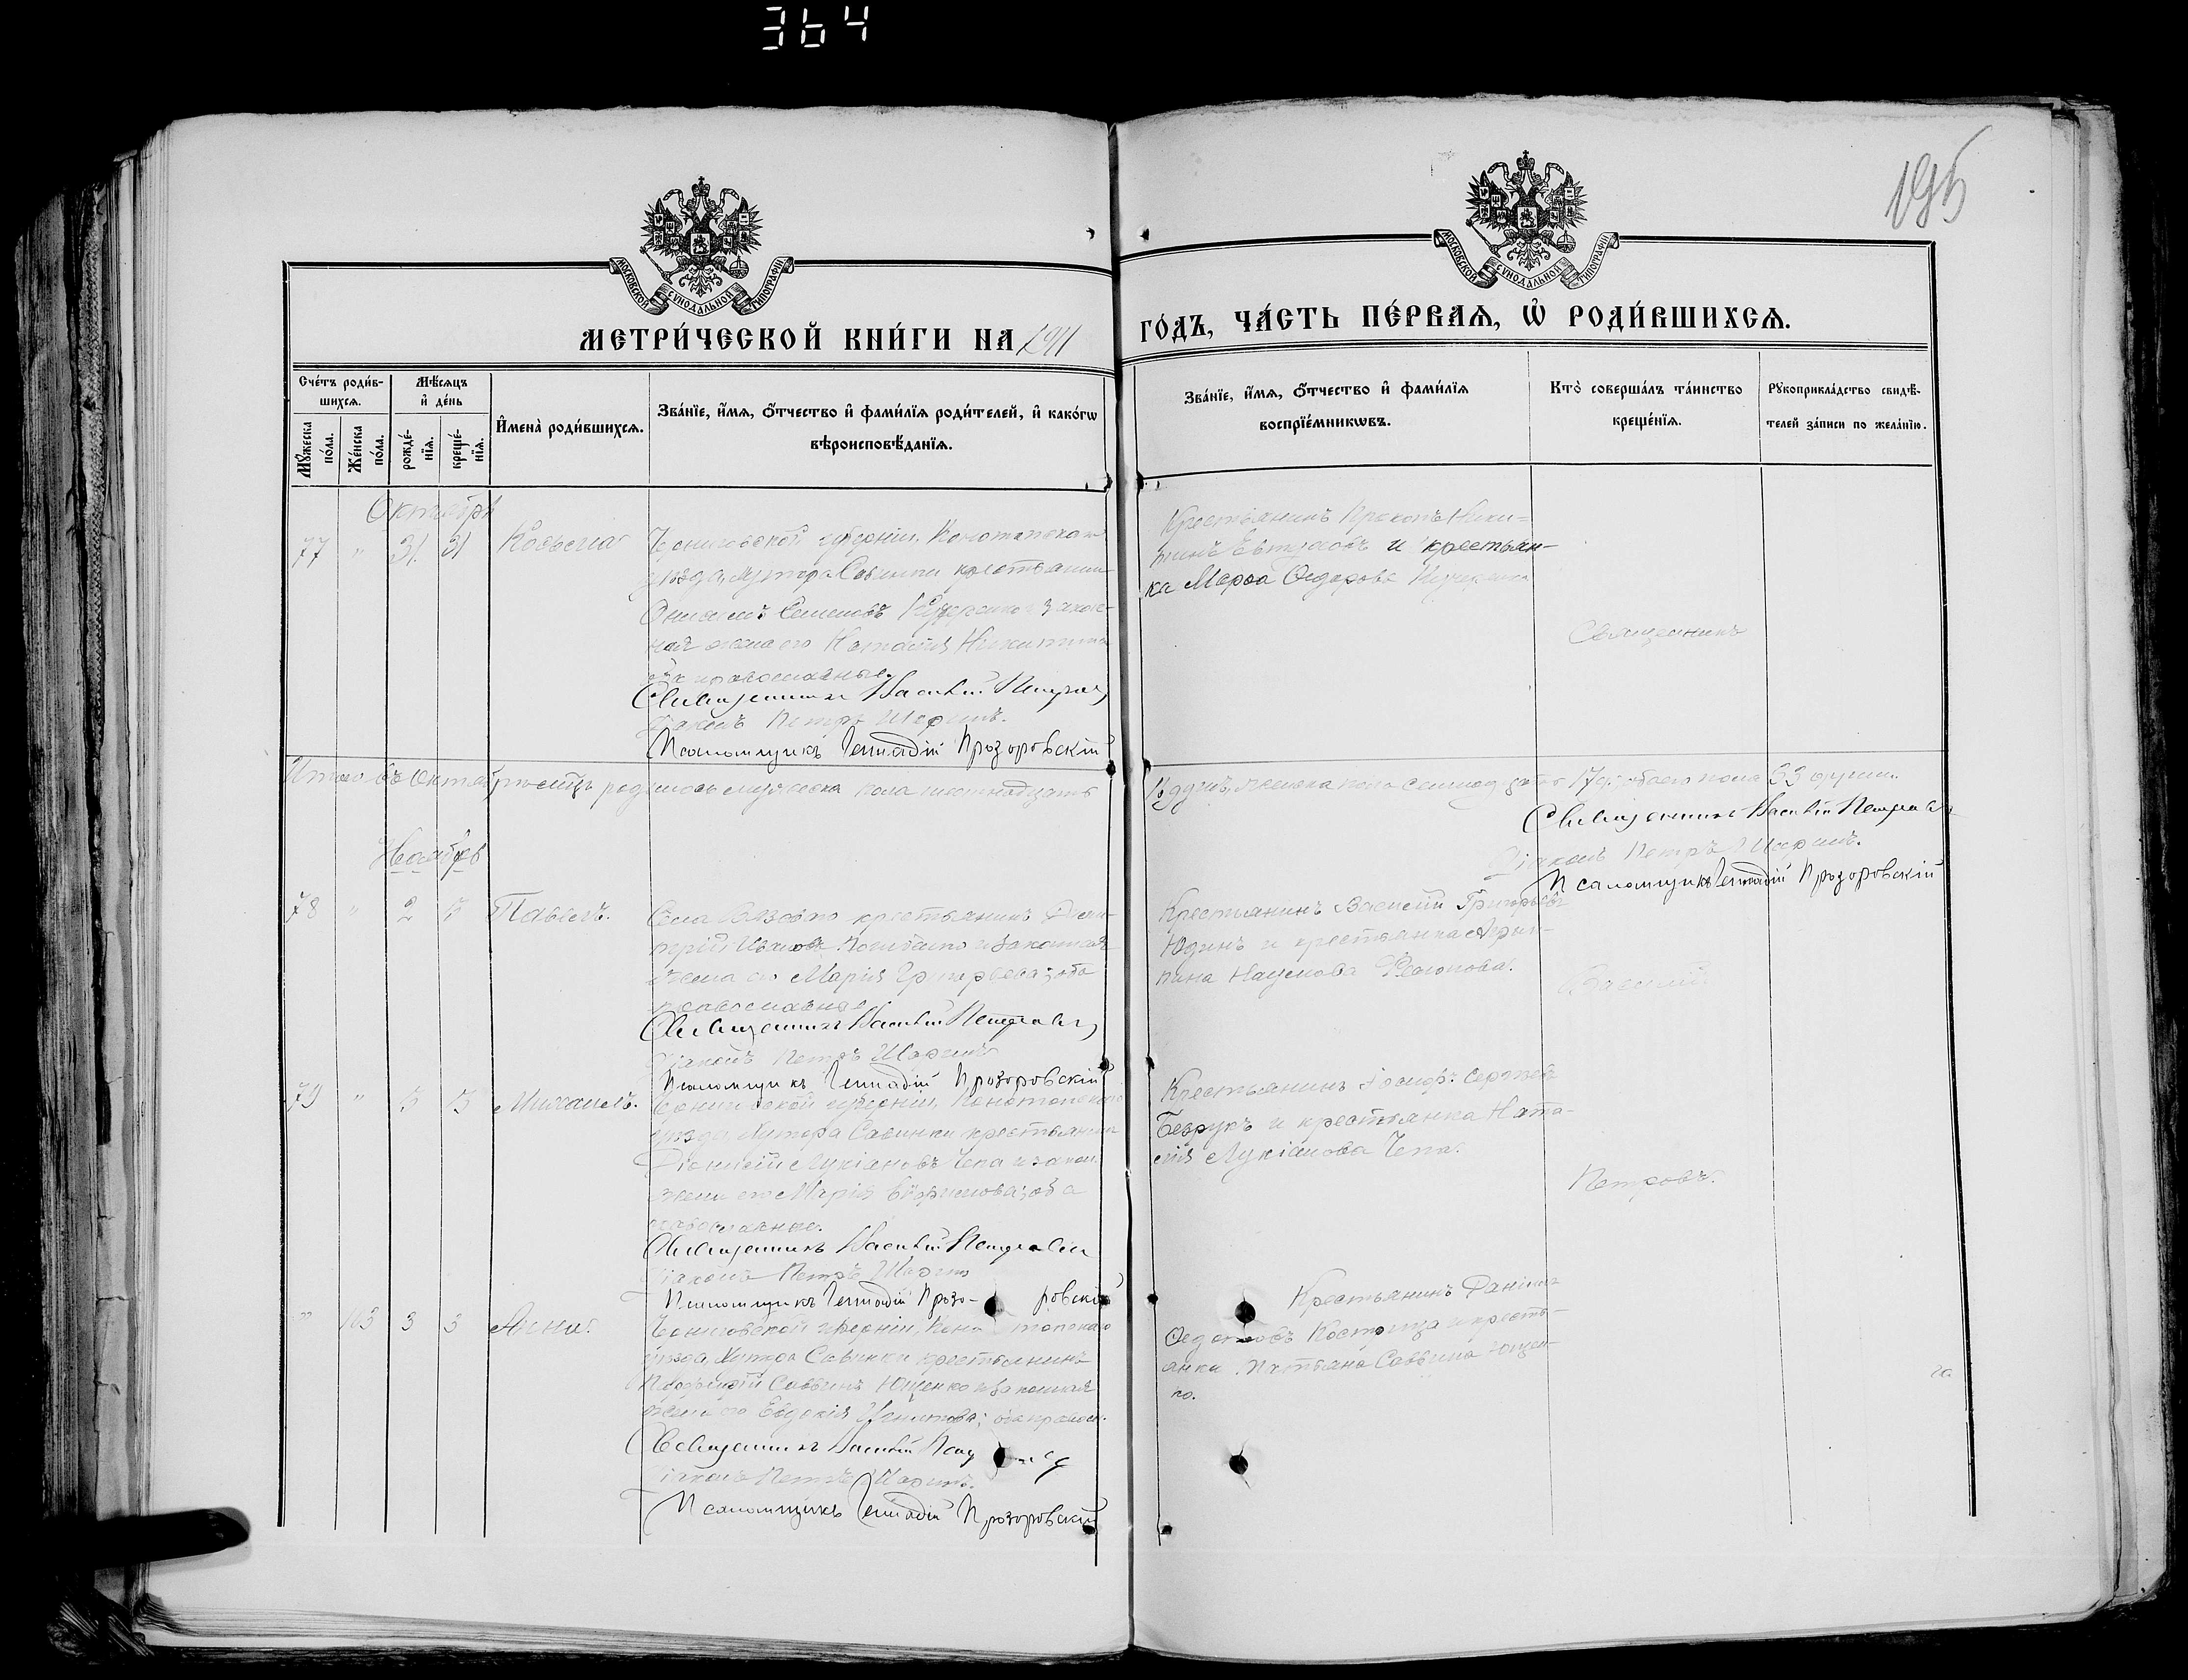 364
195
МОСКОВСКОЙ СѴНОДАЛЬНОЙ ТИПОГРАФІИ
МОСКОВСКОЙ СѴНОДАЛЬНОЙ ТИПОГРАФІИ
МЕТРИ́ЧЕСКОЙ КНИ́ГИ НА 1911
ГО́ДЪ, ЧА́СТЬ ПЕ́РВАЯ, Ѡ҆ РОДИ́ВШИХСЯ.
Сче́тъ роди́в-
шихся.
Мꙋ́жеска
по́ла.
Же́нска
по́ла.
Мѣ́сяцъ
и҆ де́нь
рожде́-
нїя.
креще́-
нїя.
И҆мена̀ роди́вшихся.
Зва́нїе, и҆́мя, ѻ҆́тчество и҆ фами́лїя роди́телей, и҆ како́гѡ
вѣроисповѣ́данїя.
Зва́нїе, и҆́мя, ѻ҆́тчество и҆ фами́лїя
воспрїе́мникѡвъ.
Кто̀ соверша́лъ та́инство
креще́нїя.
Рꙋкоприкла́дство свидѣ́-
телей за́писи по жела́нїю.
Октябрь
77 " 31 31 Косьма
Черниговской губерніи, Конотопскаго
уѣзда, хутора Савинки крестьянинъ
Онисимъ Семеновъ и закон-
ная жена его Наталія Никитина
оба православные.
Священникъ Василій Петровъ
Діаконъ Петръ Шаринъ.
Псаломщикъ Геннадій Прозоровскій
Крестьянинъ Прокопъ Ники-
тинъ и крестьян-
ка Марѳа Ѳедорова
Священникъ
Итого въ Октябрѣ мѣсяцѣ родилось мужеска пола шестнадцать
душъ, женска пола семнадцать 17 д.; обоего пола 33 души.
Священникъ Василій Петровъ
Діаконъ Петръ Шаринъ.
Псаломщикъ Геннадій Прозоровскій
Ноябрь
78 " 2 Павелъ.
Села крестьянинъ Дими-
трій Ивановъ и законная
жена его Марія Григорьева; оба
православные
Священникъ Василій Петровъ
Діаконъ Петръ Шаринъ
Псаломщикъ Геннадій Прозоровскій
Крестьянинъ Василій Григорьевъ
Юдинъ и крестьянка Агрип-
пина Наумова
Василій
79 " Михаилъ.
Черниговской губерніи, Конотопскаго
уѣзда, хутора Савинки крестьянинъ
Діонисій Лукіановъ Чепа и закон.
жена его Марія Ефимова; оба
православные.
Священникъ Василій Петровъ
Діаконъ Петръ Шаринъ
Псаломщикъ Геннадій Прозоровскій
Крестьянинъ Іосифъ Сергѣевъ
Безрукъ и крестьянка Ната-
лія Лукіанова Чепа.
Петровъ.
" 103 3 3 Анна.
Черниговской губерніи, Конотопскаго
уѣзда, хутора Савинки крестьянинъ
Саввинъ Ющенко и законная
жена его Евдокія; оба правосл.
Священникъ Василій Петровъ
Діаконъ Петръ Шаринъ.
Псаломщикъ Геннадій Прозоровскій
Крестьянинъ Даніилъ
Ѳедотовъ и кресть-
янка Татьяна Саввина Ющен-
ко.